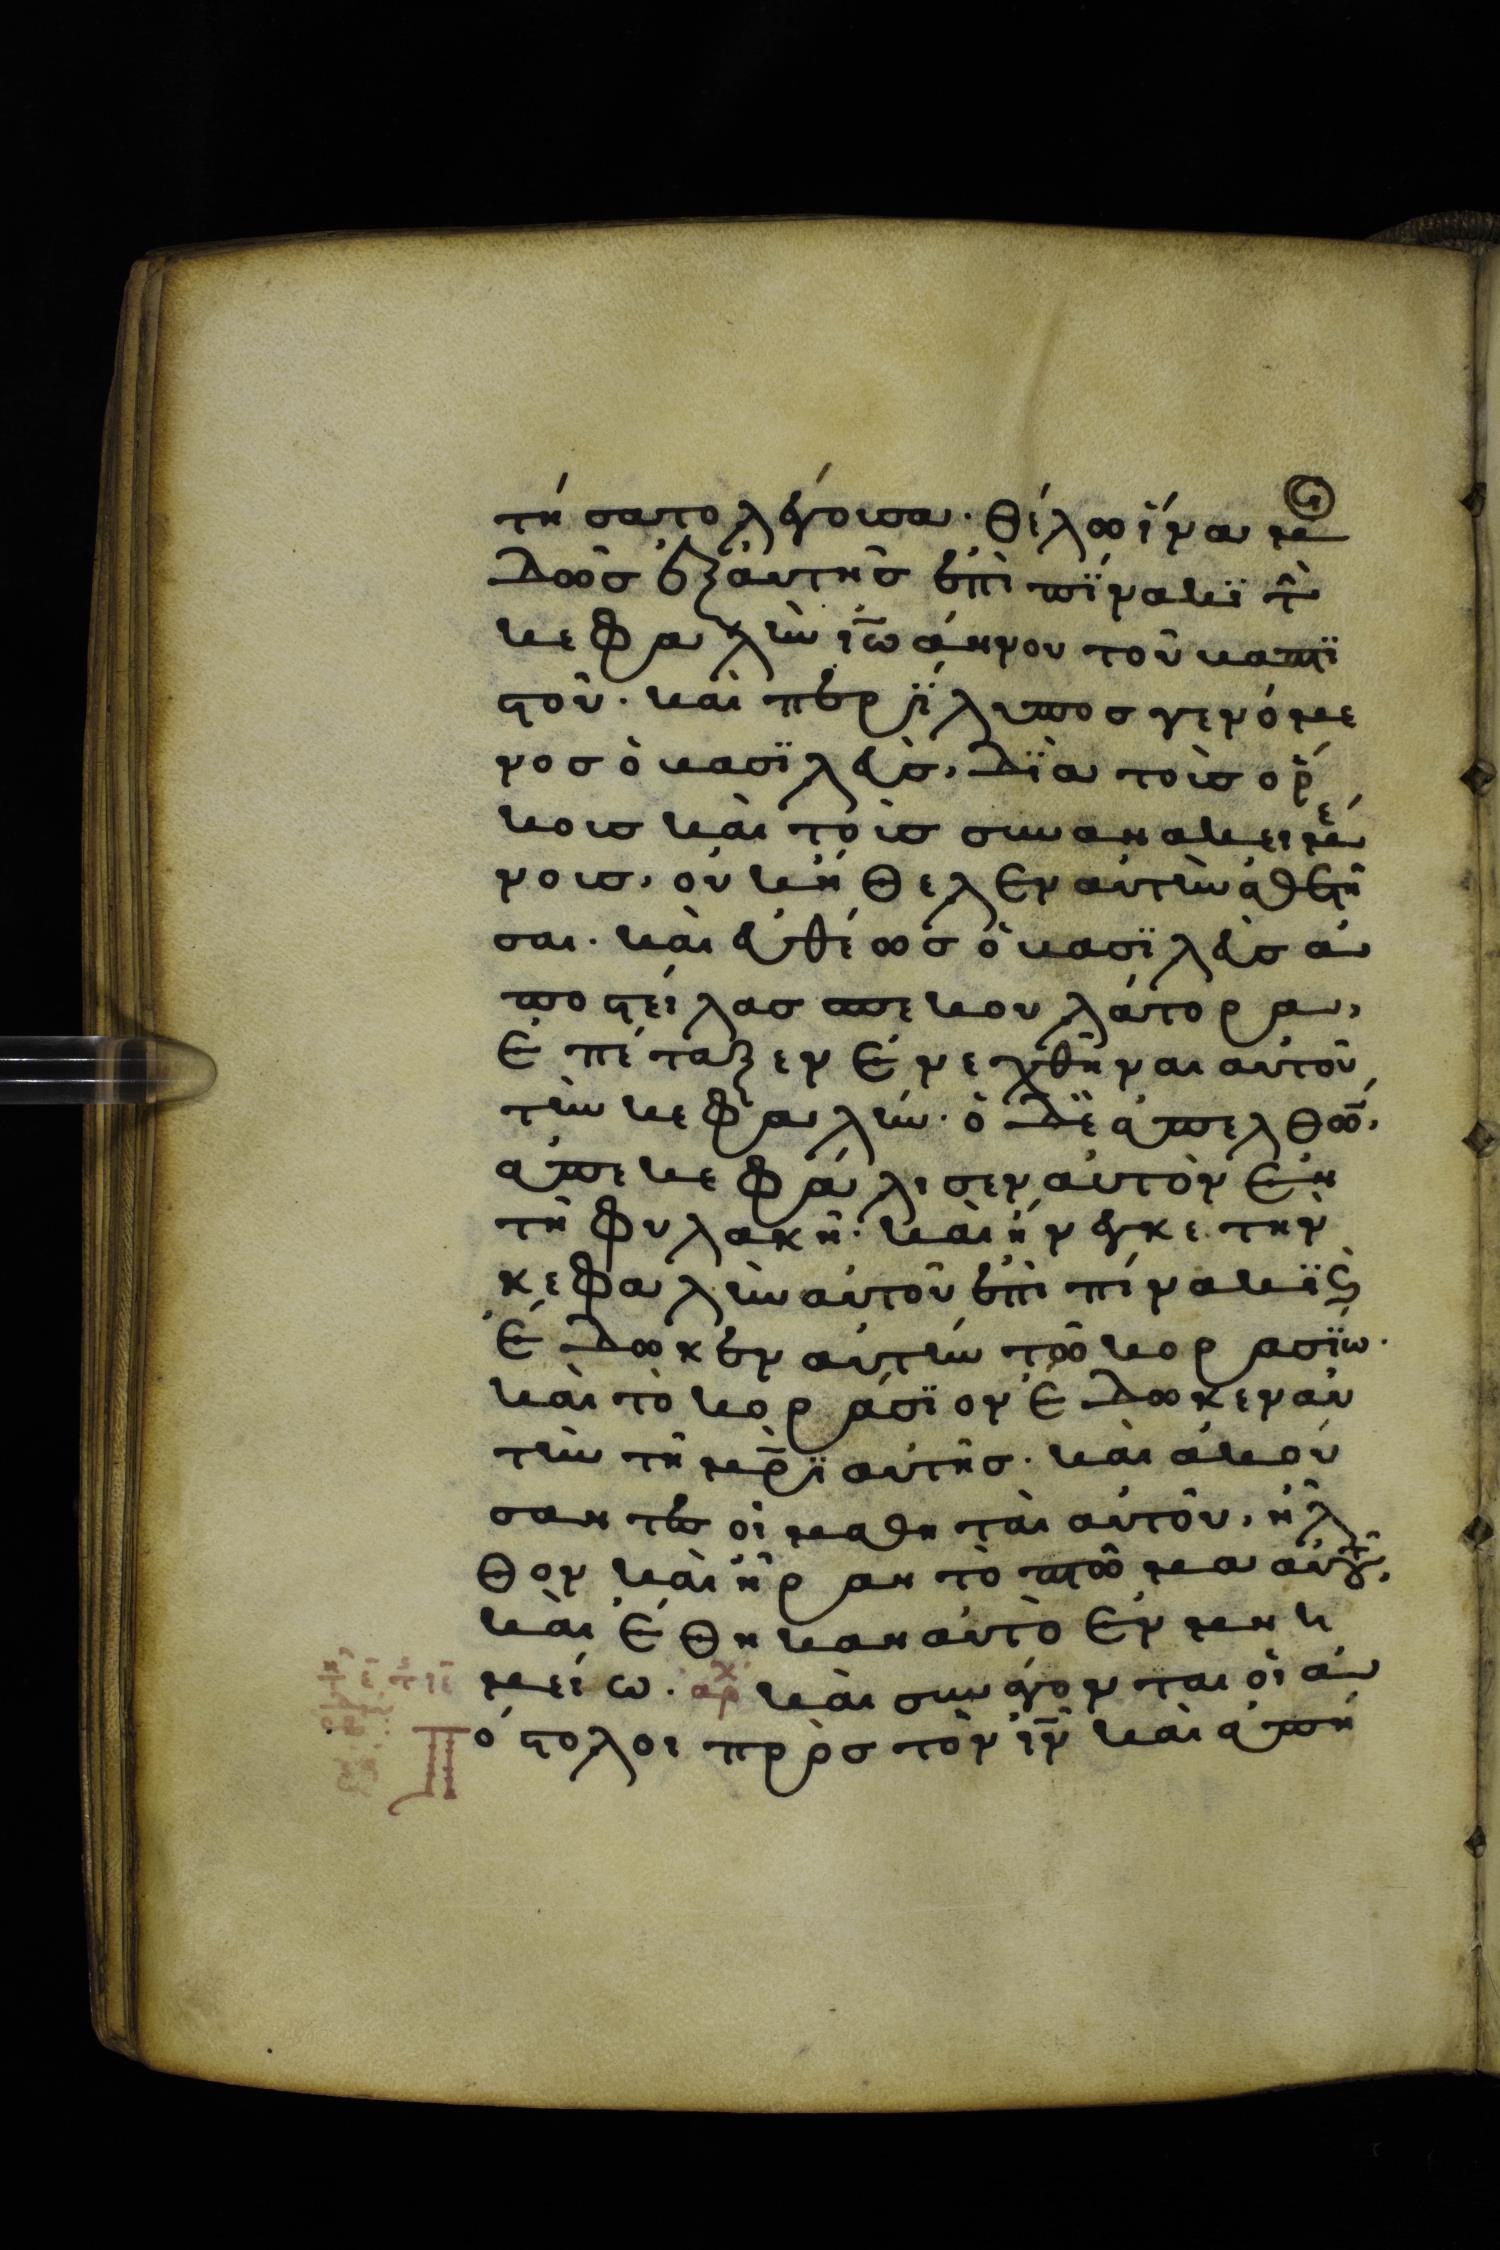 τήσατο λέγουσα· θέλω ἵνα μοι
δῶς ἐξαυτῆς ἐπὶ πίνακι τὴν
κεφαλὴν ἰω̅άννου τοῦ βαπτι
στοῦ· καὶ περίλυπος γενόμε
νος ὁ βασιλεὺς, δϊὰ τοὺς ὅρ
κους καὶ τοὺς συνανακειμέ
νους, οὐκ ἤθελεν αὐτὴν ἀθετῆ
σαι· καὶ εὐθέως ὁ βασιλεὺς ἀ
ποστείλας σπεκουλάτορα,
ἐπέταξεν ἐνεχθῆναι αὐτοῦ
τὴν κεφαλήν· ὁ δὲ ἀπελθὼν,
ἀπεκεφάλισεν αὐτὸν ἐν
τῆ φυλακῆ· καὶ ἤνεγκε τὴν
κεφαλὴν αὐτοῦ ἐπὶ πίνακι ϗ
ἔδωκεν αὐτὴν τῶ κορασίω·
καὶ τὸ κοράσιον ἔδωκεν αὐ
τὴν τῆ μρ̅ϊ αὐτῆς· καὶ ἀκού
σαντες οἱ μαθηταὶ αὐτοῦ, ἦλ
θον καὶ ἦραν τὸ πτῶμα αὐτοῦ,
καὶ ἔθηκαν αὐτὸ ἐν μνη
μείω· ἀρχ καὶ συνάγονται οἱ ἀ
πόστολοι πρὸς τὸν ιν̅ καὶ ἀπή